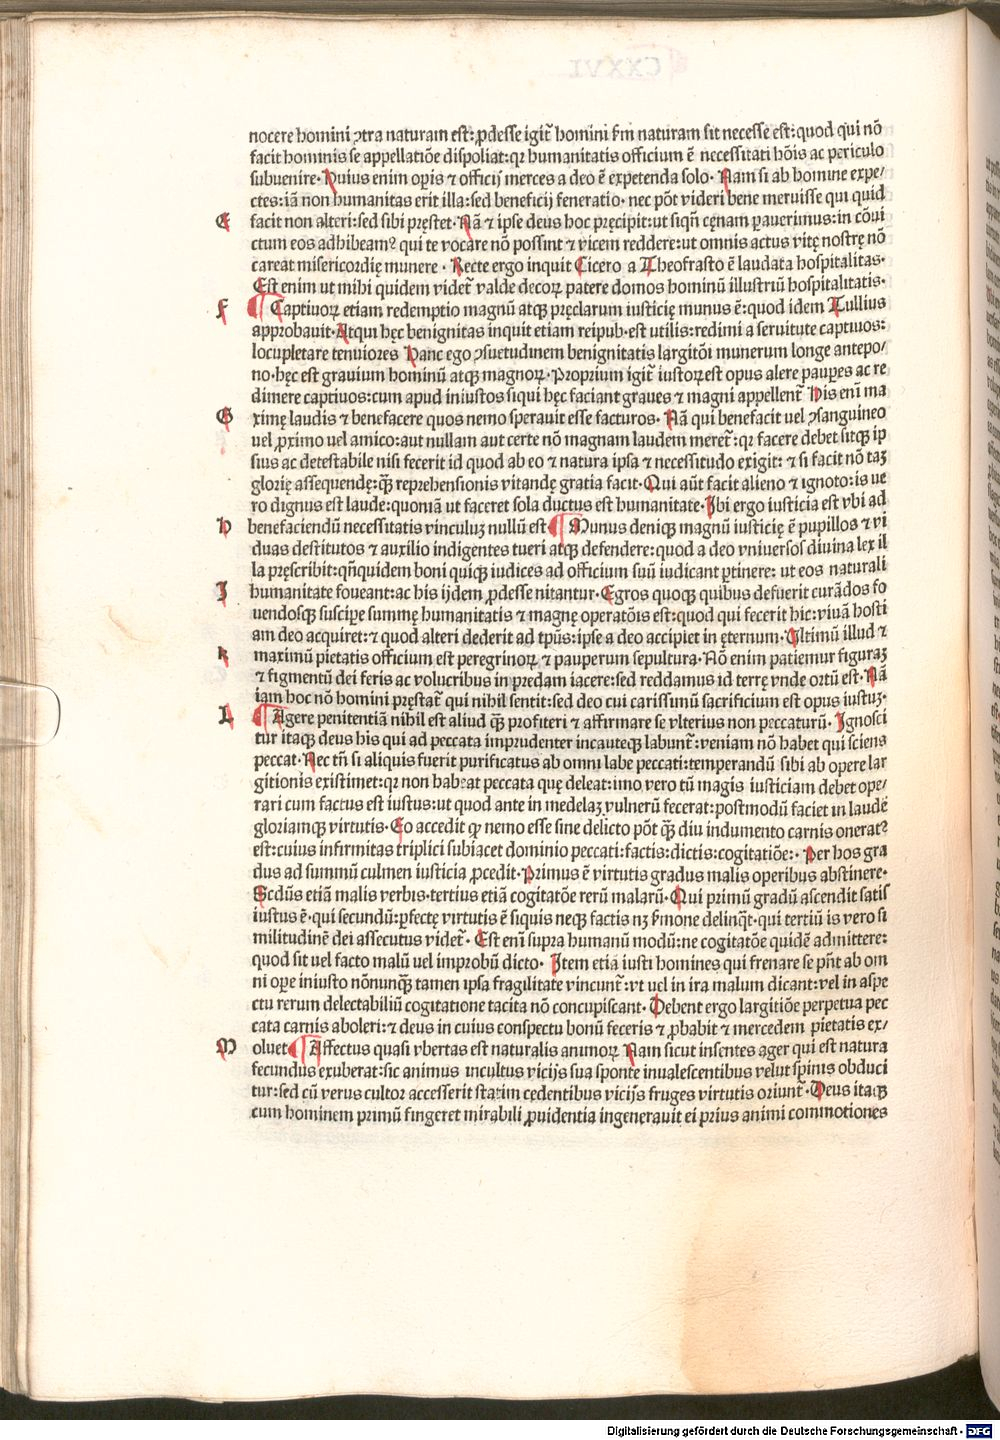 nocere homini ↄtra naturam est: ꝓdesse igit᷑ homini ẜm naturam sit necesse est: quod qui nō
facit hominis se appellatiōe dispoliat: qꝛ humanitatis officium ē necessitati hōis ac periculo
subuenire· Huius enim oꝑis ⁊ officij merces a deo ē expetenda solo· Nam si ab homine expe/
ctes: iā non humanitas erit illa: sed beneficij feneratio· nec pōt videri bene meruisse qui quid
E facit non alteri: sed sibi pręstet· Nā ⁊ ipse deus hoc pręcipit: ut siqñ cęnam ꝑauerimus: in cōui
ctum eos adhibeamꝰ qui te vocare nō possint ⁊ vicem reddere: ut omnis actus vitę nostrę nō
careat misericordię munere · Recte ergo inquit Cicero a Theofrasto ē laudata hospitalitas·
Est enim ut mihi quidem videt᷑ valde decoꝝ patere domos hominū illustriū hospitalitatis·
F ¶ Captiuoꝝ etiam redemptio magnū atqꝫ pręclarum iusticię munus ē: quod idem Tullius
approbauit· Atqui hęc benignitas inquit etiam reipub· est utilis: redimi a seruitute captiuos:
locupletare tenuiores Hanc ego ↄsuetudinem benignitatis largitōi munerum longe antepo/
no· hęc est grauium hominū atqꝫ magnoꝝ· Proprium igit᷑ iustoꝝ est opus alere pauꝑes ac re
dimere captiuos: cum apud iniustos siqui hęc faciant graues ⁊ magni appellent᷑ His enī ma
G ximę laudis ⁊ benefacere quos nemo sperauit esse facturos· Nā qui benefacit uel ↄsanguineo
uel ꝓximo uel amico: aut nullam aut certe nō magnam laudem meret᷑: qꝛ facere debet sitqꝫ ip
sius ac detestabile nisi fecerit id quod ab eo ⁊ natura ipsa ⁊ necessitudo exigit: ⁊ si facit nō taꝫ
glorię assequendę: qꝫ̄ reprehensionis vitandę gratia facit· Qui aūt facit alieno ⁊ ignoto: is ue
ro dignus est laude: quoniā ut faceret sola ductus est humanitate· Ibi ergo iusticia est vbi ad
H benefaciendū necessitatis vinculuꝫ nullū est· ¶ Munus deniqꝫ magnū iusticię ē pupillos ⁊ vi
duas destitutos ⁊ auxilio indigentes tueri atqꝫ defendere: quod a deo vniuersos diuina lex il
la pręscribit: qñquidem boni quiqꝫ iudices ad officium suū iudicant ꝑtinere: ut eos naturali
I humanitate foueant: ac his ijdem ꝓdesse nitantur· Egros quoqꝫ quibus defuerit curādos fo
uendosqꝫ suscipe summę humanitatis ⁊ magnę operatōis est: quod qui fecerit hic: viuā hosti
am deo acquiret: ⁊ quod alteri dederit ad tp̄us: ipse a deo accipiet in ęternum· Vltimū illud ⁊
K maximū pietatis officium est peregrinoꝝ ⁊ pauperum sepultura· Nō enim patiemur figuraꝫ
⁊ figmentū dei feris ac volucribus in predam iacere: sed reddamus id terrę vnde ortū est· Nā
iam hoc nō homini pręstat᷑ qui nihil sentit: sed deo cui carissimū sacrificium est opus iustuꝫ·
L ¶ Agere penitentiā nihil est aliud qꝫ̄ profiteri ⁊ affirmare se vlterius non peccaturū· Ignosci
tur itaqꝫ deus his qui ad peccata imprudenter incauteqꝫ labunt᷑: veniam nō habet qui sciens
peccat· Nec tn̄ si aliquis fuerit purificatus ab omni labe peccati: temperandū sibi ab opere lar
gitionis existimet: qꝛ non habeat peccata quę deleat: imo vero tū magis iusticiam debet ope/
rari cum factus est iustus: ut quod ante in medelaꝫ vulnerū fecerat: postmodū faciet in laudē
gloriamqꝫ virtutis· Eo accedit ꝙ nemo esse sine delicto pōt qꝫ̄ diu indumento carnis oneratꝰ
est: cuius infirmitas triplici subiacet dominio peccati: factis: dictis: cogitatiōe: · Per hos gra
dus ad summū culmen iusticia ꝓcedit· Primus ē virtutis gradus malis operibus abstinere·
Scdūs etiā malis verbis· tertius etiā cogitatōe rerū malarū· Qui primū gradū ascendit satis
iustus ē· qui secundū: ꝑfectę virtutis ē siquis neqꝫ factis nꝫ ẜmone delinqͥt· qui tertiū is vero si
militudinē dei assecutus videt᷑· Est enī supra humanū modū: ne cogitatōe quidē admittere:
quod sit uel facto malū uel improbū dicto· Item etiā iusti homines qui frenare se pn̄t ab om
ni oꝑe iniusto nōnunqꝫ̄ tamen ipsa fragilitate vincunt᷑: vt uel in ira malum dicant: vel in aspe
ctu rerum delectabiliū cogitatione tacita nō concupiscant· Debent ergo largitiōe perpetua pec
cata carnis aboleri: ⁊ deus in cuius conspectu bonū feceris ⁊ ꝓbabit ⁊ mercedem pietatis ex/
M oluet ¶ Affectus quasi vbertas est naturalis animoꝝ Nam sicut insentes ager qui est natura
fecundus exuberat: sic animus incultus vicijs sua sponte inualescentibus velut spinis obduci
tur: sed cū verus cultor accesserit statim cedentibus vicijs fruges virtutis oriunt᷑· Deus itaqꝫ
cum hominem primū fingeret mirabili ꝓuidentia ingenerauit ei prius animi commotiones
Digitalisierung gefördert durch die Deutsche Forschungsgemeinschaft - DFG